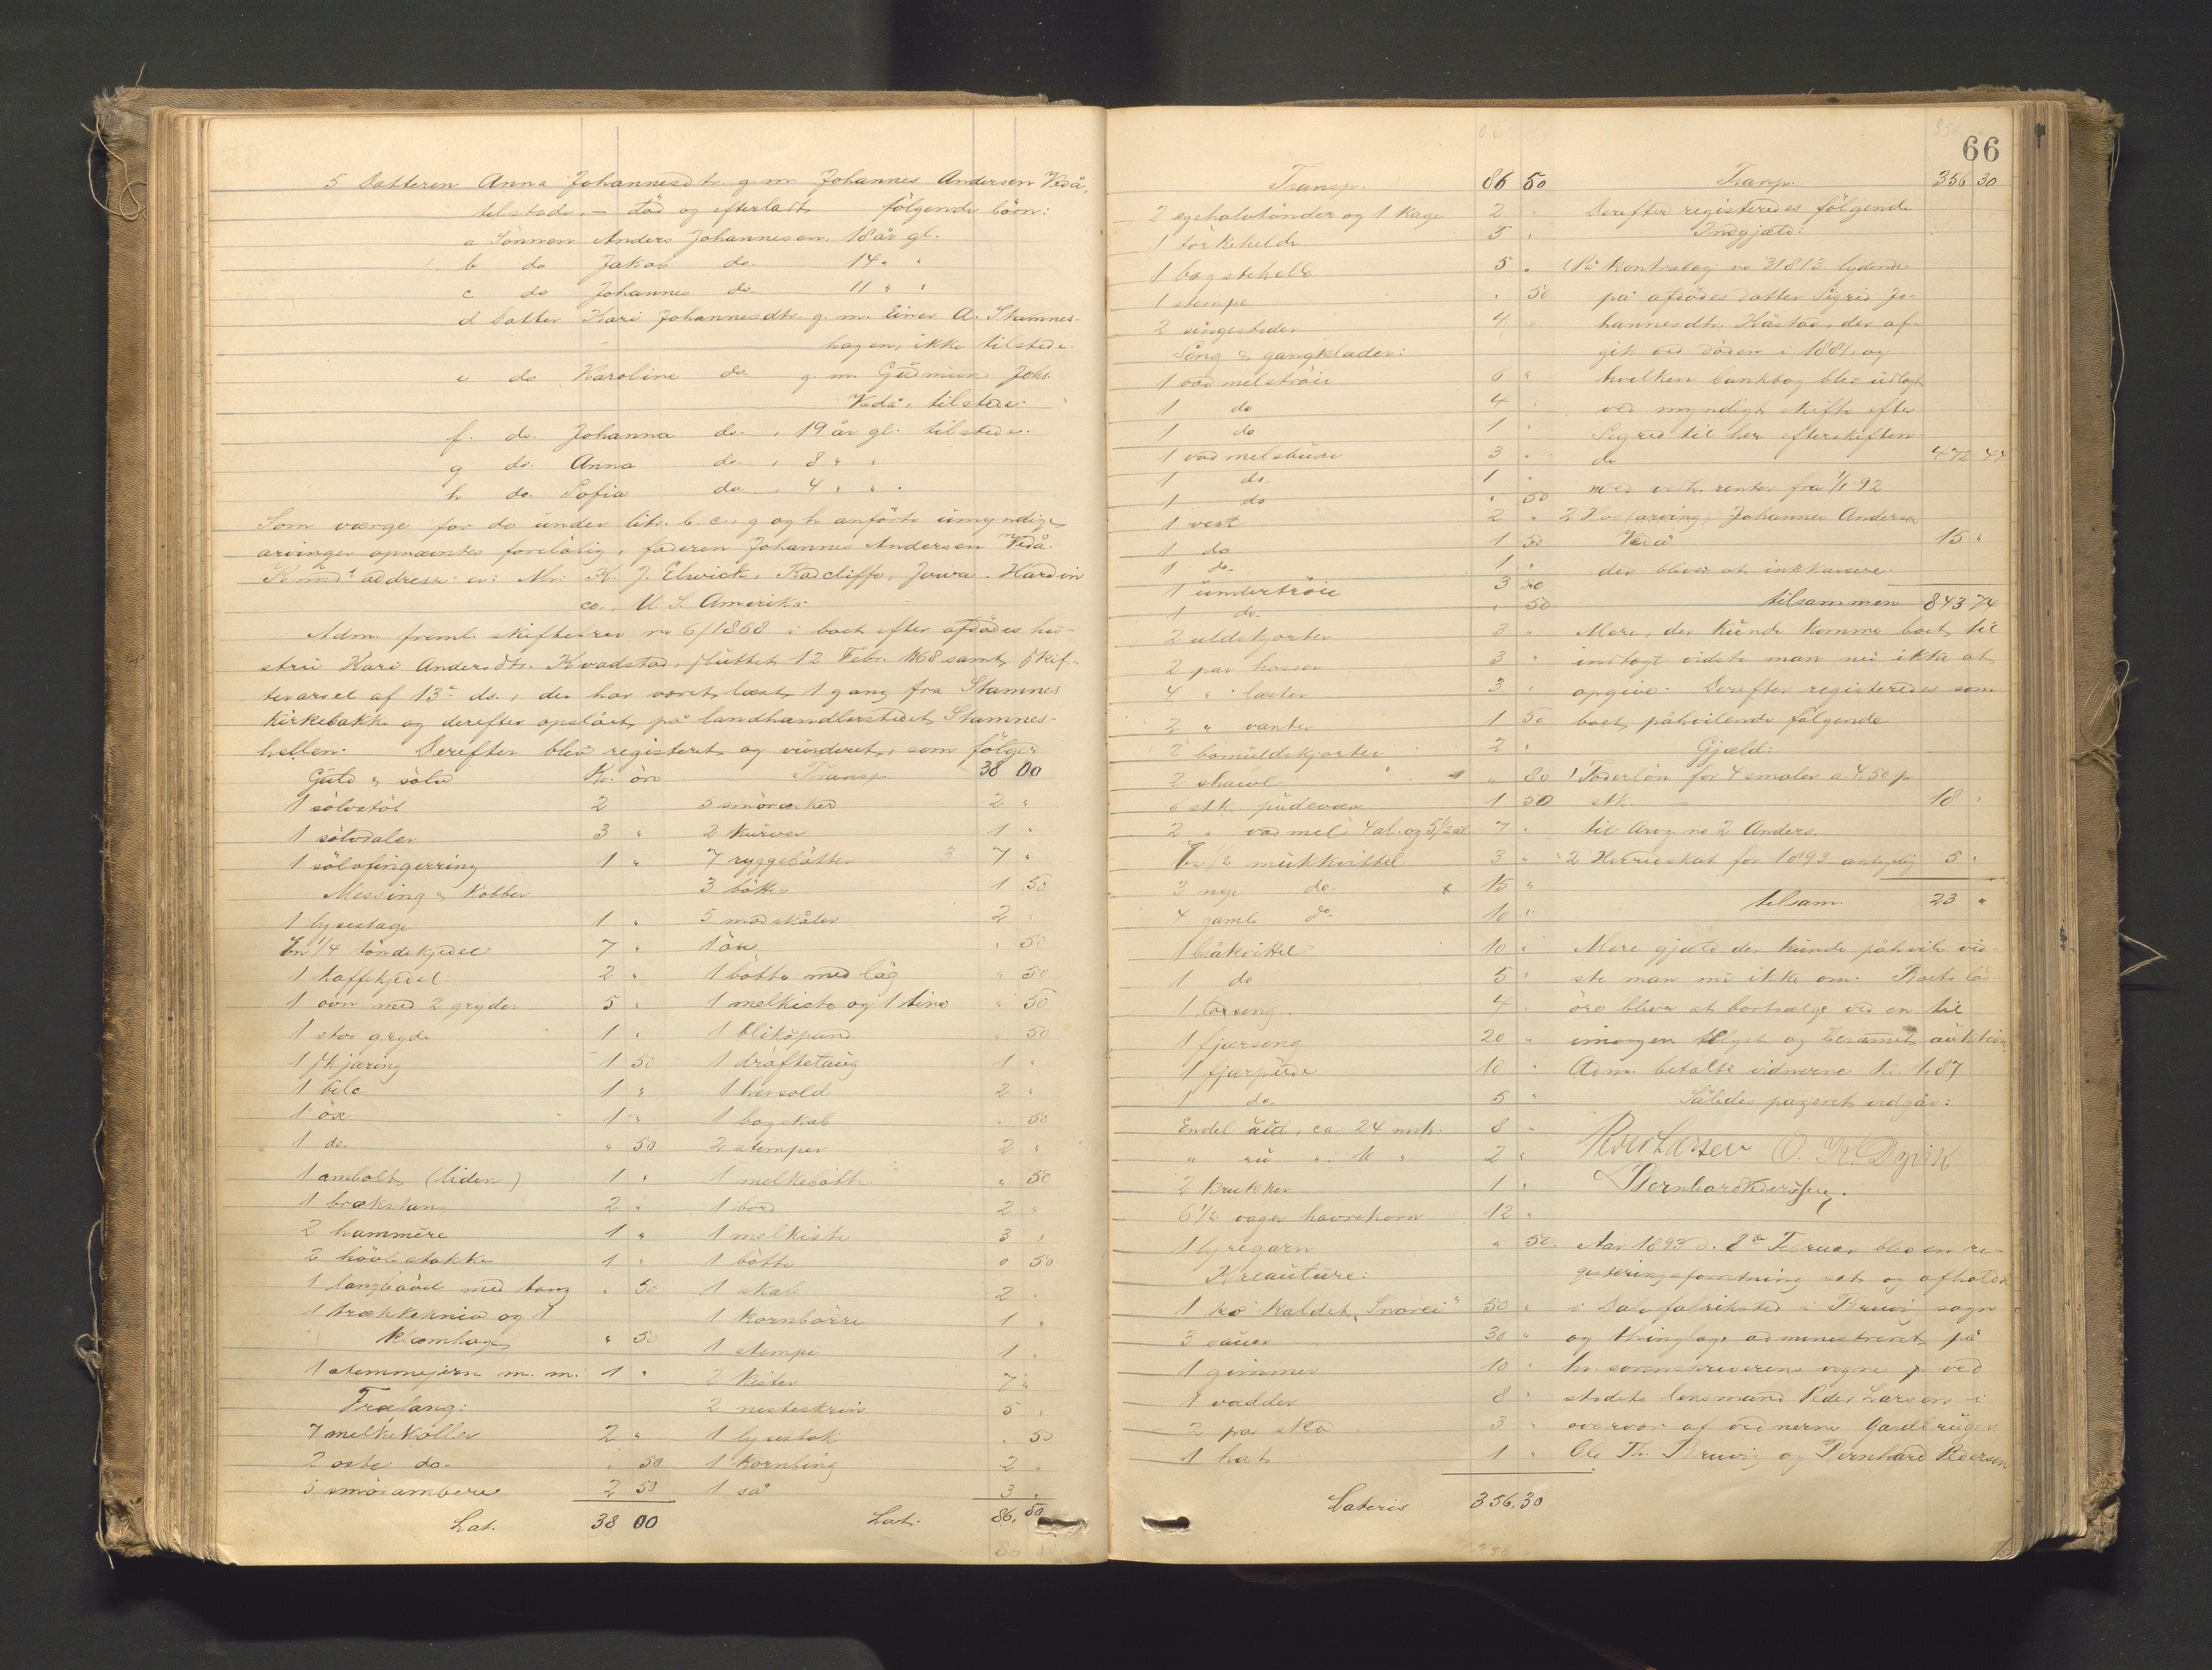 5 Datteren Anna Johannesdtr. g. m. Johannes Andersen Vedå,
tilstede, – död og efterladt følgende börn:
a Sönnen Anders Johannesen, 18 år gl.
b do Jakob do 14 " "
c do Johannes do 11 " "
d Datter Kari Johannesdtr. g. m. Einer A. Stamnes-
hagen, ikke tilstede.
e do Karoline do g. m. Gudmund Johs.
Vedå, tilstede.
f. do. Johanna do. , 19 år gl. tilstede.
g do. Anna do , 8 " "
h do. Sofia do. , 4 " " "
Som værge for de under litr. b. c. g og h anförte umyndige
arvinger opnævntes foreløbig, faderen Johannes Andersen Vedå.
Knuds addresse er: Mr. K. J. Elwick, Radcliffe, Jowa. Hardin
co., U. S. Amerika.
Adm. freml. skiftebrev no 6/1868 i boet efter afdødes hu-
stru Kari Andersdtr. Kvadstad, sluttet 12 Febr. 1868 samt skif-
tevarsel af 13de ds., der har været læst 1 gang fra Stamnes
Kirkebakke og derefter opslået på landhandlerstedet Stamnes-
hellen. Derefter blev registeret og vurderet, som følger:
Guld & sölv Kr. öre
1 sölvstöb 2
1 sölvdaler 3 "
1 sölvfingerring 1 "
Messing & Kobber
1 lysestage 1 "
En 1/4 töndekjedel 7 "
1 kaffekjedel 2 "
1 ovn med 2 gryder 5 "
1 stor gryde 1 "
1 skjæring 1 50
1 bile 1 "
1 öx 1 "
1 do. " 50
1 ambolt (liden) 1 "
1 brækstang 2 "
2 hammere 1 "
2 hövlestokke 1 "
1 langhövel med tang " 50
1 trækkekniv og 1
Klomhage " 50
1 stemmejern m. m. 1 "
Trætang:
7 melkekoller 2 "
2 oste do. " 50
5 smörambere 2 50
Lat. 38 00
Transp 38 00
5 smöræsker 2 "
2 kurver 1 "
7 ryggebötter 7 "
3 bötter 1 50
5 madskåler 2 "
1 öse " 50
1 bötte med låg " 50
1 melkiste og 1 tine " 50
1 blikspand " 50
1 dråftetaug 1 "
1 hersold 2 "
1 bogskab " 50
2 stemper 2 "
1 melkebötte " 50
1 bord 2 "
1 melkiste 3 "
1 bötte 0 50
1 skab 2 "
1 kornbörre 1 "
1 stempe 1 "
2 kister 7 "
2 nisteskrin 5 "
1 lysestok " 50
1 kornbing 2 "
1 så 3 "
Lat. 86, 50
66
Transp. 86 50
2 egehalvtönder og 1 kage 2 "
1 törkehelde 5 "
1 bagstehelle 5 "
1 stempe " 50
2 sengesteder 4 "
Seng & gangklæder:
1 vadmelströie 6 "
1 do 4 "
1 do 1 "
1 vadmelsbuxe 3 "
1 do. 1 "
1 do " 50
1 vest 2 "
1 do 1 50
1 do. 1 "
1 undertröie 3 50
1 do. " 50
2 uldskjorter 3 "
2 par hosser 3 "
4 " læster 3 "
2 " vanter 1 50
2 bomuldskjorter 2 "
2 shawl " 80
6 stk. pudevær 1 50
2 " vadmel 4 al. og 5 1/2 al. 7 "
En 1/2 mukkvittel 3 "
3 nye do. 15 "
4 gamle do. 10 "
1 blåkvittel 10 "
1 do 5 "
1 børseng. 4 "
1 fjærseng 20 "
1 fjærpude 10 "
1 do. 5 "
Endel uld, ca. 24 mrk. 8 "
2 krukker 1 "
6 1/2 vager havrekorn 12 "
1 lyregarn " 50.
Kreauture:
1 ko kaldet „Snorei" 50 "
3 sauer 30 "
1 gimmer 10 "
1 vædder 8 "
2 par sko 3 "
1 hat 1 "
Lateris 356,30
Transp. 356 30
Derefter registeredes følgende
Indgjæld:
1. På kontrabog no 31813 lydende
på afdødes datter Sigrid Jo-
hannesdtr. Kåstad, der af-
gik ved döden i 1881, og
hvilken bankbog blev udlagt
ved myndigt skifte efter
Sigrid til her efterskiften-
de 472 44
med vedh. renter fra 1/1 92
2 Hos (arving) Johannes Andersen
Vedå 15 "
der bliver at inkkassere.
tilsammen 843 74
Mere, der kunde komme boet til
indtægt vidste man nu ikke at
opgive. Derefter registeredes som
boet påhvilende følgende
Gjæld:
1 Foderlön for 4 smaler a 4,50 pr.
stk. – 18 "
til Arvg. no 2 Anders.
2 Herredskat for 1893 antagelig 5 "
tilsam. 23 "
Mere gjæld der kunde påhvile vid-
ste man nu ikke om. Boets lös-
öre bliver at bortsælge ved en til
imorgen lyst og berammet auktion.
Adm. betalte vidnerne Kr. 1,87
Således passeret vedgår:
Peder Larsen O. K. Dyvik
Bernhard Pedersen.
Aar 1893 d. 8de Februar blev en re-
gisteringsforretning sat og afholdt
i Dale fabriksted i Bruvig sogn
og thinglag administreret på
hr. sorenskriverens vegne ved
stedets lensmand Peder Larsen i
overvær af vidnerne Gaardbruger
Ole Th. Bruvig og Bernhard Pedersen